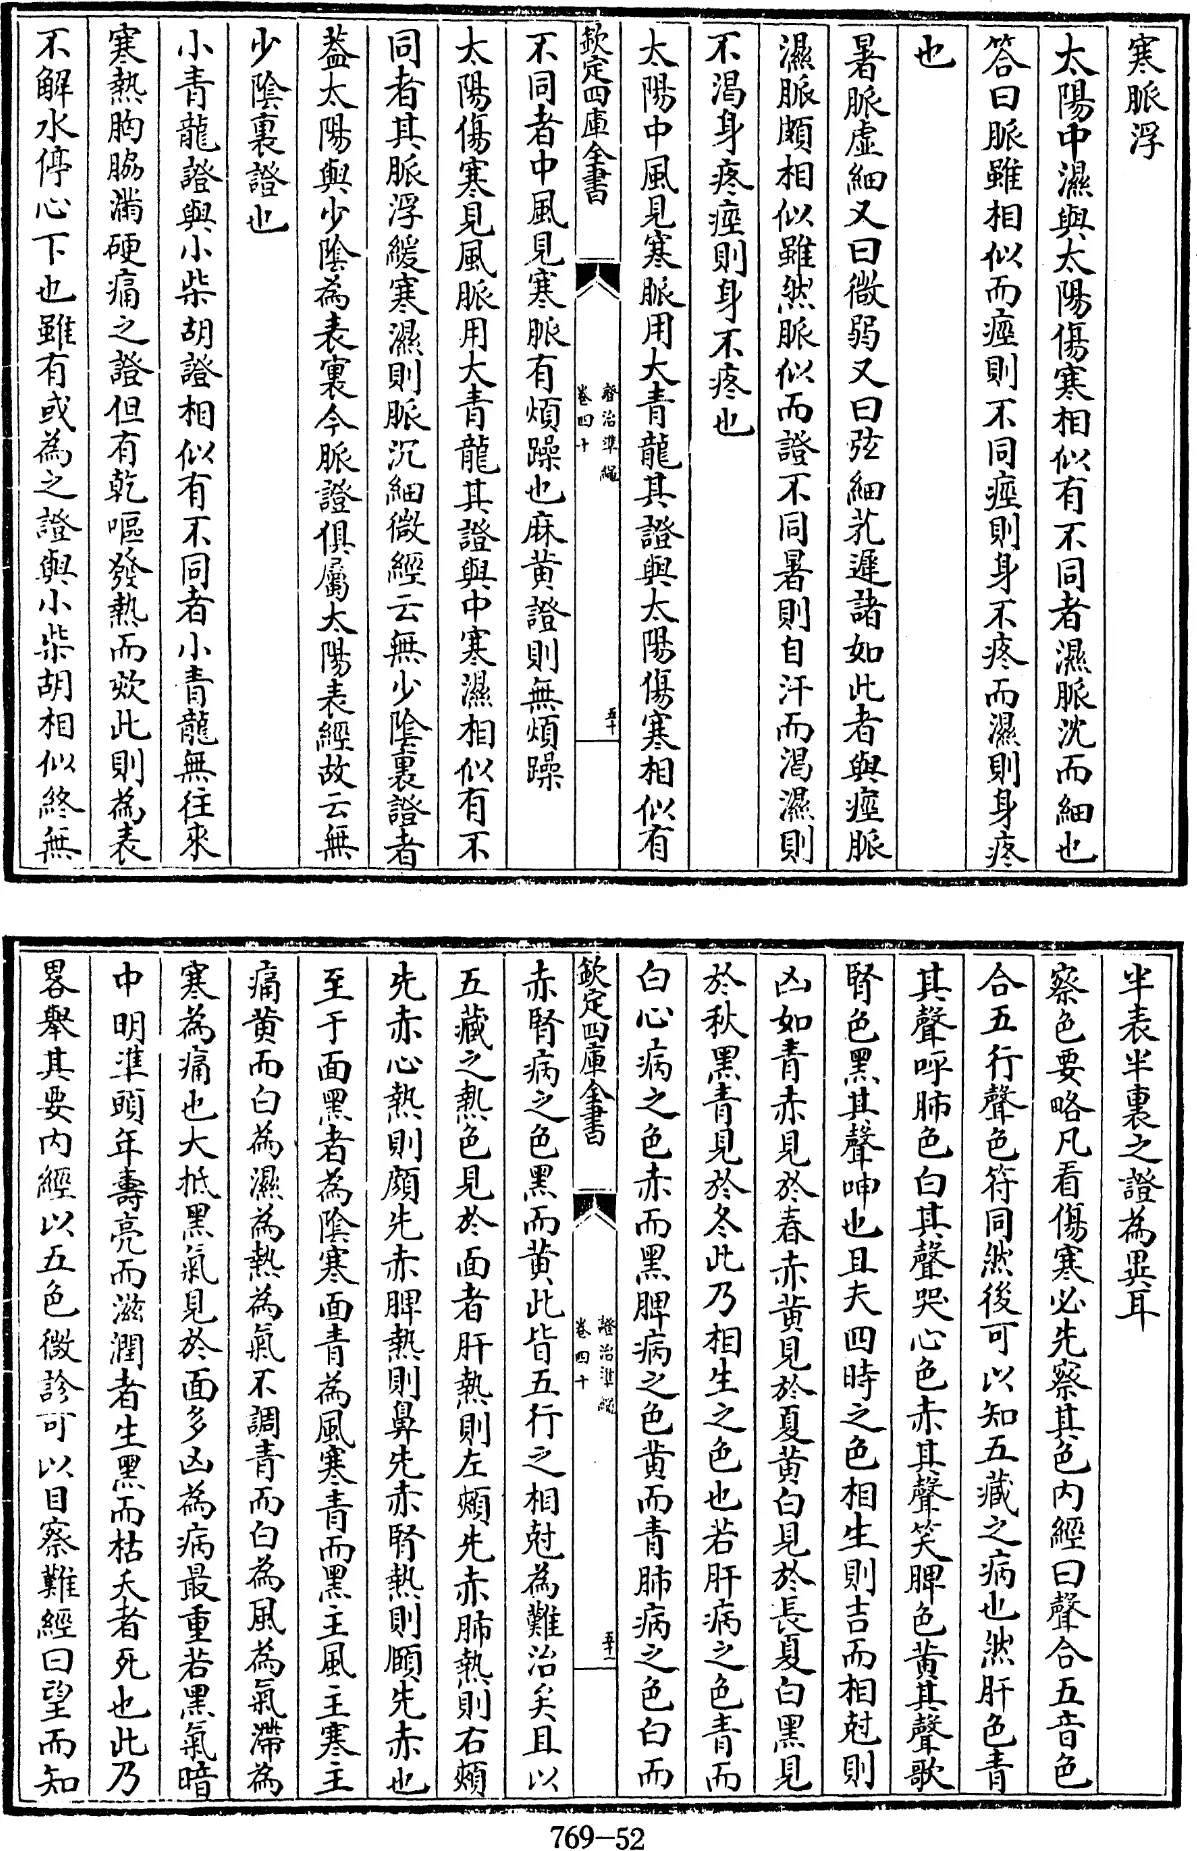 寒脈浮
太陽中濕與太陽傷寒相似有不同者濕脈沈而細也
答曰脈雖相似而痙則不同痙則身不疼而濕則身疼
也
暑脈虛細又曰微弱又曰弦細芤遲諸如此者與痙脈
濕脈頗相似雖然脈似而證不同暑則自汗而渴濕則
不渴身疼痙則身不疼也
太陽中風見寒脈用大青龍其證與太陽傷寒相似有
欽定四庫全書
證治準繩
卷四十
五十
不同者中風見寒脈有煩躁也麻黄證則無煩躁
太陽傷寒見風脈用大青龍其證與中寒濕相似有不
同者其脈浮緩寒濕則脈沉細微經云無少陰裏證者
葢太陽與少陰為表裏今脈證俱屬太陽表經故云無
少陰裏證也
小青龍證與小柴胡證相似有不同者小青龍無往來
寒熱胸脇滿硬痛之證但有乾嘔發熱而欬此則為表
不解水停心下也雖有或為之證與小柴胡相似終無
半表半裏之證為異耳
察色要略凡看傷寒必先察其色内經曰聲合五音色
合五行聲色符同然後可以知五藏之病也然肝色青
其聲呼肺色白其聲哭心色赤其聲笑脾色黄其聲歌
腎色黑其聲呻也且夫四時之色相生則吉而相尅則
凶如青赤見於春赤黄見於夏黄白見於長夏白黑見
於秋黑青見於冬此乃相生之色也若肝病之色青而
白心病之色赤而黑脾病之色黄而青肺病之色白而
欽定四庫全書
證治準繩
卷四十
五十一
赤腎病之色黑而黄此皆五行之相尅為難治矣且以
五藏之熱色見於面者肝熱則左頰先赤肺熱則右頰
先赤心熱則顏先赤脾熱則鼻先赤腎熱則頤先赤也
至于面黑者為陰寒面青為風寒青而黑主風主寒主
痛黄而白為濕為熱為氣不調青而白為風為氣滯為
寒為痛也大抵黑氣見於面多凶為病最重若黑氣暗
中明準頭年壽亮而滋潤者生黑而枯夭者死也此乃
畧舉其要内經以五色微診可以目察難經曰望而知
769-52